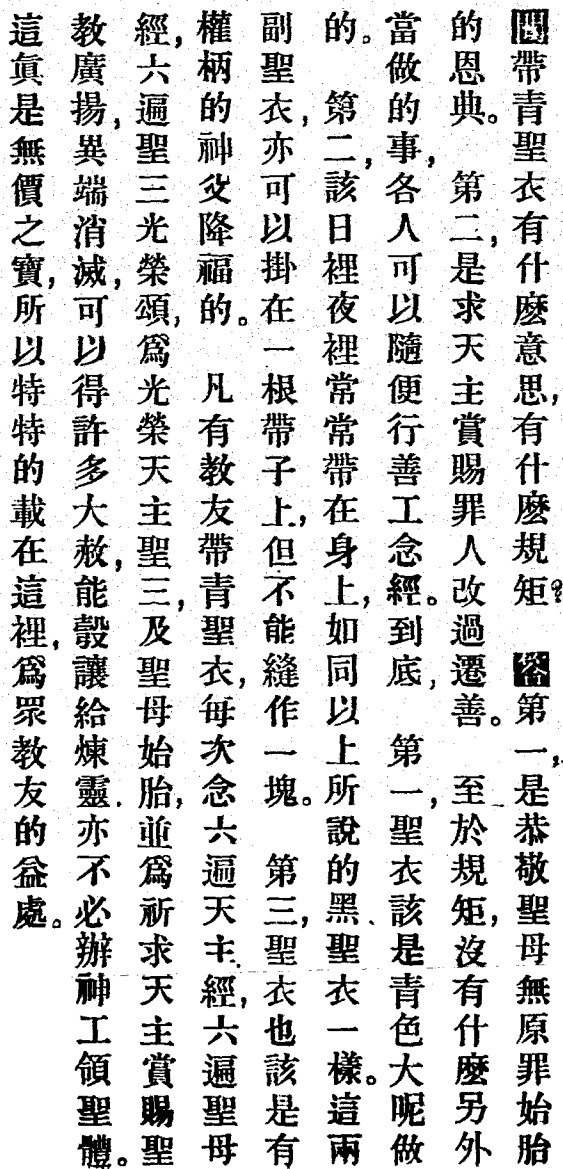 問帶青聖衣有什麽意思,有什麽規矩?答第一,是恭敬聖母無原罪始胎
的恩典。第二,是求天主賞賜罪人改過遷善。至於規矩,沒有什麽另外
當做的事,各人可以隨便行善工念經。到底,第一,聖衣該是青色大呢做
的。第二,該日裡夜裡常常帶在身上,如同以上所說的黑聖衣一樣。這兩
副聖衣,亦可以掛在一根帶子上,但不能縫作一塊。第三,聖衣也該是有
權柄的神父降福的。凡有教友帶青聖衣,每次念六遍天主經,六遍聖母
經,六遍聖三光榮頌,爲光榮天主聖三,及聖母始胎,並爲祈求天主賞賜聖
教廣揚,異端消滅,可以得許多大赦,能彀讓給煉靈.亦不必辦神工領聖體。
這眞是無價之寶,所以特特的載在這裡,爲眾教友的益處。